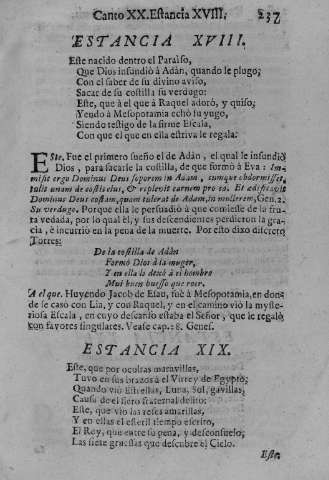 Canto XX. Estancia XVIII. 237
ESTANCIA XVIII.
Este nacido dentro el Paraiso,
Que Dios infundiò à Adàn, quando le plugo;
Con el saber de su divino aviso,
Sacar de su costilla su verdugo:
Este, que à el que à Raquel adorò, y quiso;
Yendo à Mesopotamia echò su yugo,
Siendo testigo de la firme Escala,
Con que el que en ella estriva le regala:
Este. Fue el primero sueño el de Adàn, el qual le infundiò
Dios, para sacarle la costilla, de que formò à Eva: Im-
misit ergo Dominus Deus soporem in Adam, cumque obdormisset,
tulit unam de costis eius, & replevit carnem pro ea. Et ædificavit
Dominus Deus costam, quam tulerat de Adam, in mulierem, Gen. 2.
Su verdugo. Porque ella le persuadiò à que comiesse de la fru-
ta vedada, por lo qual èl, y sus descendientes perdieron la gra-
cia, è incurriò en la pena de la muerte. Por esto dixo discreto
Torres:
De la costilla de Adàn
Formò Dios à la muger,
Y en ella le dexò à el hombre
Mui buen huesso que roer.
A el que. Huyendo Jacob de Esau, fuè à Mesopotamia, en don-
de se caso con Lia, y con Raquel, y en el camino viò la myste-
riosa Escala, en cuyo descanso estaba el Señor, que le regalò
con favores singulares. Vease cap. 28. Genes.
ESTANCIA XIX.
Este, que por ocultas maravillas,
Tuvo en sus brazos à el Virrey de Egypto;
Quando viò Estrellas, Luna, Sol, gavillas,
Causa de el fiero fraternal delito:
Este, que viò las reses amarillas,
Y en ellas el esteril tiempo escrito,
El Rey, que entre su pena, y desconsuelo;
Las siete gruessas que descubre el Cielo.
Este